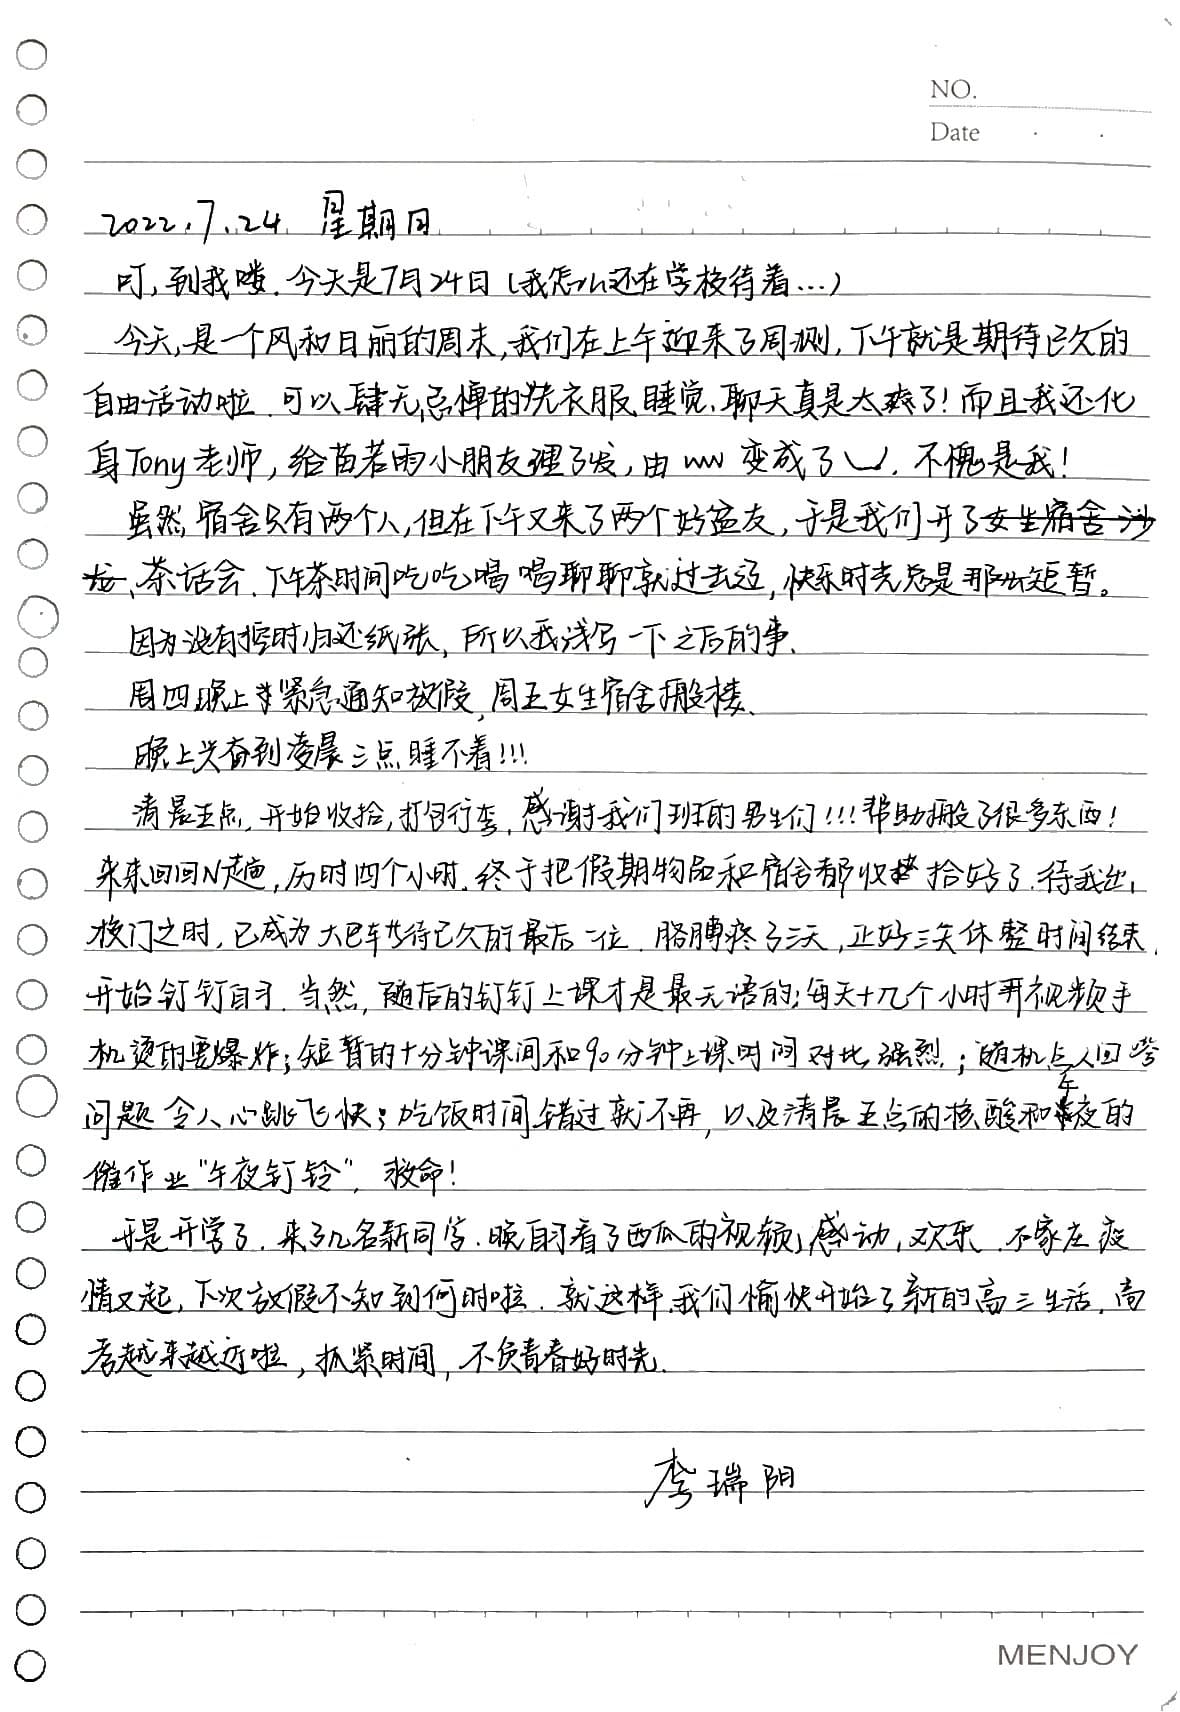 NO.
Date
2022.7.24 星期日
叮,到我喽.今天是7月24日(我怎么还在学校待着...)
今天,是一个风和日丽的周末,我们在上午迎来了周测,下午就是期待已久的
自由活动啦.可以肆无忌惮的洗衣服、睡觉、聊天真是太爽了!而且我还化
身Tony老师,给苗若雨小朋友理了发,由 变成了 .不愧是我!
虽然宿舍只有两个人,但在下午又来了两个好盆友,于是我们开了女生宿舍沙
龙、茶话会、下午茶时间吃吃喝喝聊聊就过去辽,快乐时光总是那么短暂。
因为没有按时归还纸张,所以我浅写一下之后的事.
周四晚上紧急通知放假,周五女生宿舍搬楼.
晚上兴奋到凌晨三点睡不着!!!
清晨五点,开始收拾,打包行李,感谢我们班的男生们!!!帮助搬了很多东西!
来来回回N趟,历时四个小时.终于把假期物品和宿舍都收拾好了.待我出
校门之时,已成为大巴车等待已久的最后一位.胳膊疼了三天,正好三天休整时间结束,
开始钉钉自习.当然,随后的钉钉上课才是最无语的;每天十几个小时开视频手
机烫的要爆炸;短暂的十分钟课间和90分钟上课时间对比强烈;随机点人回答
问题令人心跳飞快;吃饭时间错过就不再,以及清晨五点的核酸和午夜的
催作业“午夜钉铃”,救命!
于是开学了.来了几名新同学.晚自习看了西瓜的视频,感动,欢乐.石家庄疫
情又起,下次放假不知到何时啦.就这样,我们愉快开始了新的高三生活,高
考越来越近啦,抓紧时间,不负青春好时光.
李瑞阳
MENJOY